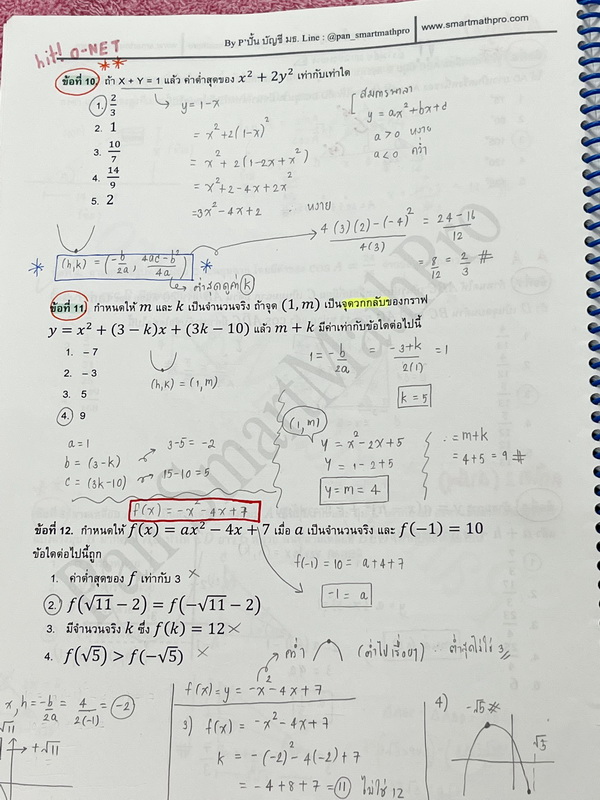 www.smartmathpro.com
By P'ปั้น บัญชี มธ. Line : @pan_smartmathpro
hit! O-NET
ข้อที่ 10. ถ้า X + Y = 1 แล้ว ค่าต่ำสุดของ x² + 2y² เท่ากับเท่าใด
1. 2/3
y = 1-x
2. 1
= x²+2(1-x)²
3. 10/7
= x²+ 2(1-2x+x²)
4. 14/9
= x²+2-4x+2x²
5. 2
=3x²-4x+2 หงาย
สมการพาลา
y = ax²+bx+c
a>0 หงาย
a<0 คว่ำ
4(3)(2)-(-4)²/4(3) = 24-16/12
= 8/12 = 2/3 #
* (h,k) = (-b/2a, 4ac-b²/4a) *
ต่ำสุดดูค่า k
ข้อที่ 11 กำหนดให้ m และ k เป็นจำนวนจริง ถ้าจุด (1, m) เป็นจุดวกกลับของกราฟ
y = x² + (3 − k)x + (3k − 10) แล้ว m + k มีค่าเท่ากับข้อใดต่อไปนี้
1. – 7
2. – 3
3. 5
4. 9
(h,k) = (1,m)
1 = -b/2a = -3+k/2(1) = 1
k = 5
a = 1
b = (3-k) 3-5 = -2
c = (3k-10) 15-10 = 5
(1,m)
y = x²-2x+5
y = 1-2+5
y = m = 4
= m+k
= 4+5 = 9 #
f(x) = -x²-4x+7
ข้อที่ 12. กำหนดให้ f(x) = ax² − 4x + 7 เมื่อ a เป็นจำนวนจริง และ f(−1) = 10
ข้อใดต่อไปนี้ถูก
f(-1) = 10 = a+4+7
-1 = a
1. ค่าต่ำสุดของ f เท่ากับ 3 ×
2. f(√11 − 2) = f(−√11 − 2)
3. มีจำนวนจริง k ซึ่ง f(k) = 12 ×
4. f(√5) > f(−√5) ×
คว่ำ (ต่ำไปเรื่อยๆ) ต่ำสุดไม่ใช่ 3
x, h = -b/2a = 4/2(-1) = -2
√11
+√11
f(x) = y = -x²-4x+7
3) f(x) = -x²-4x+7
k = -(-2)²-4(-2)+7
= -4+8+7 = 11 ไม่ใช่ 12
4) -√5 #
√5
Pan SmartMathPro